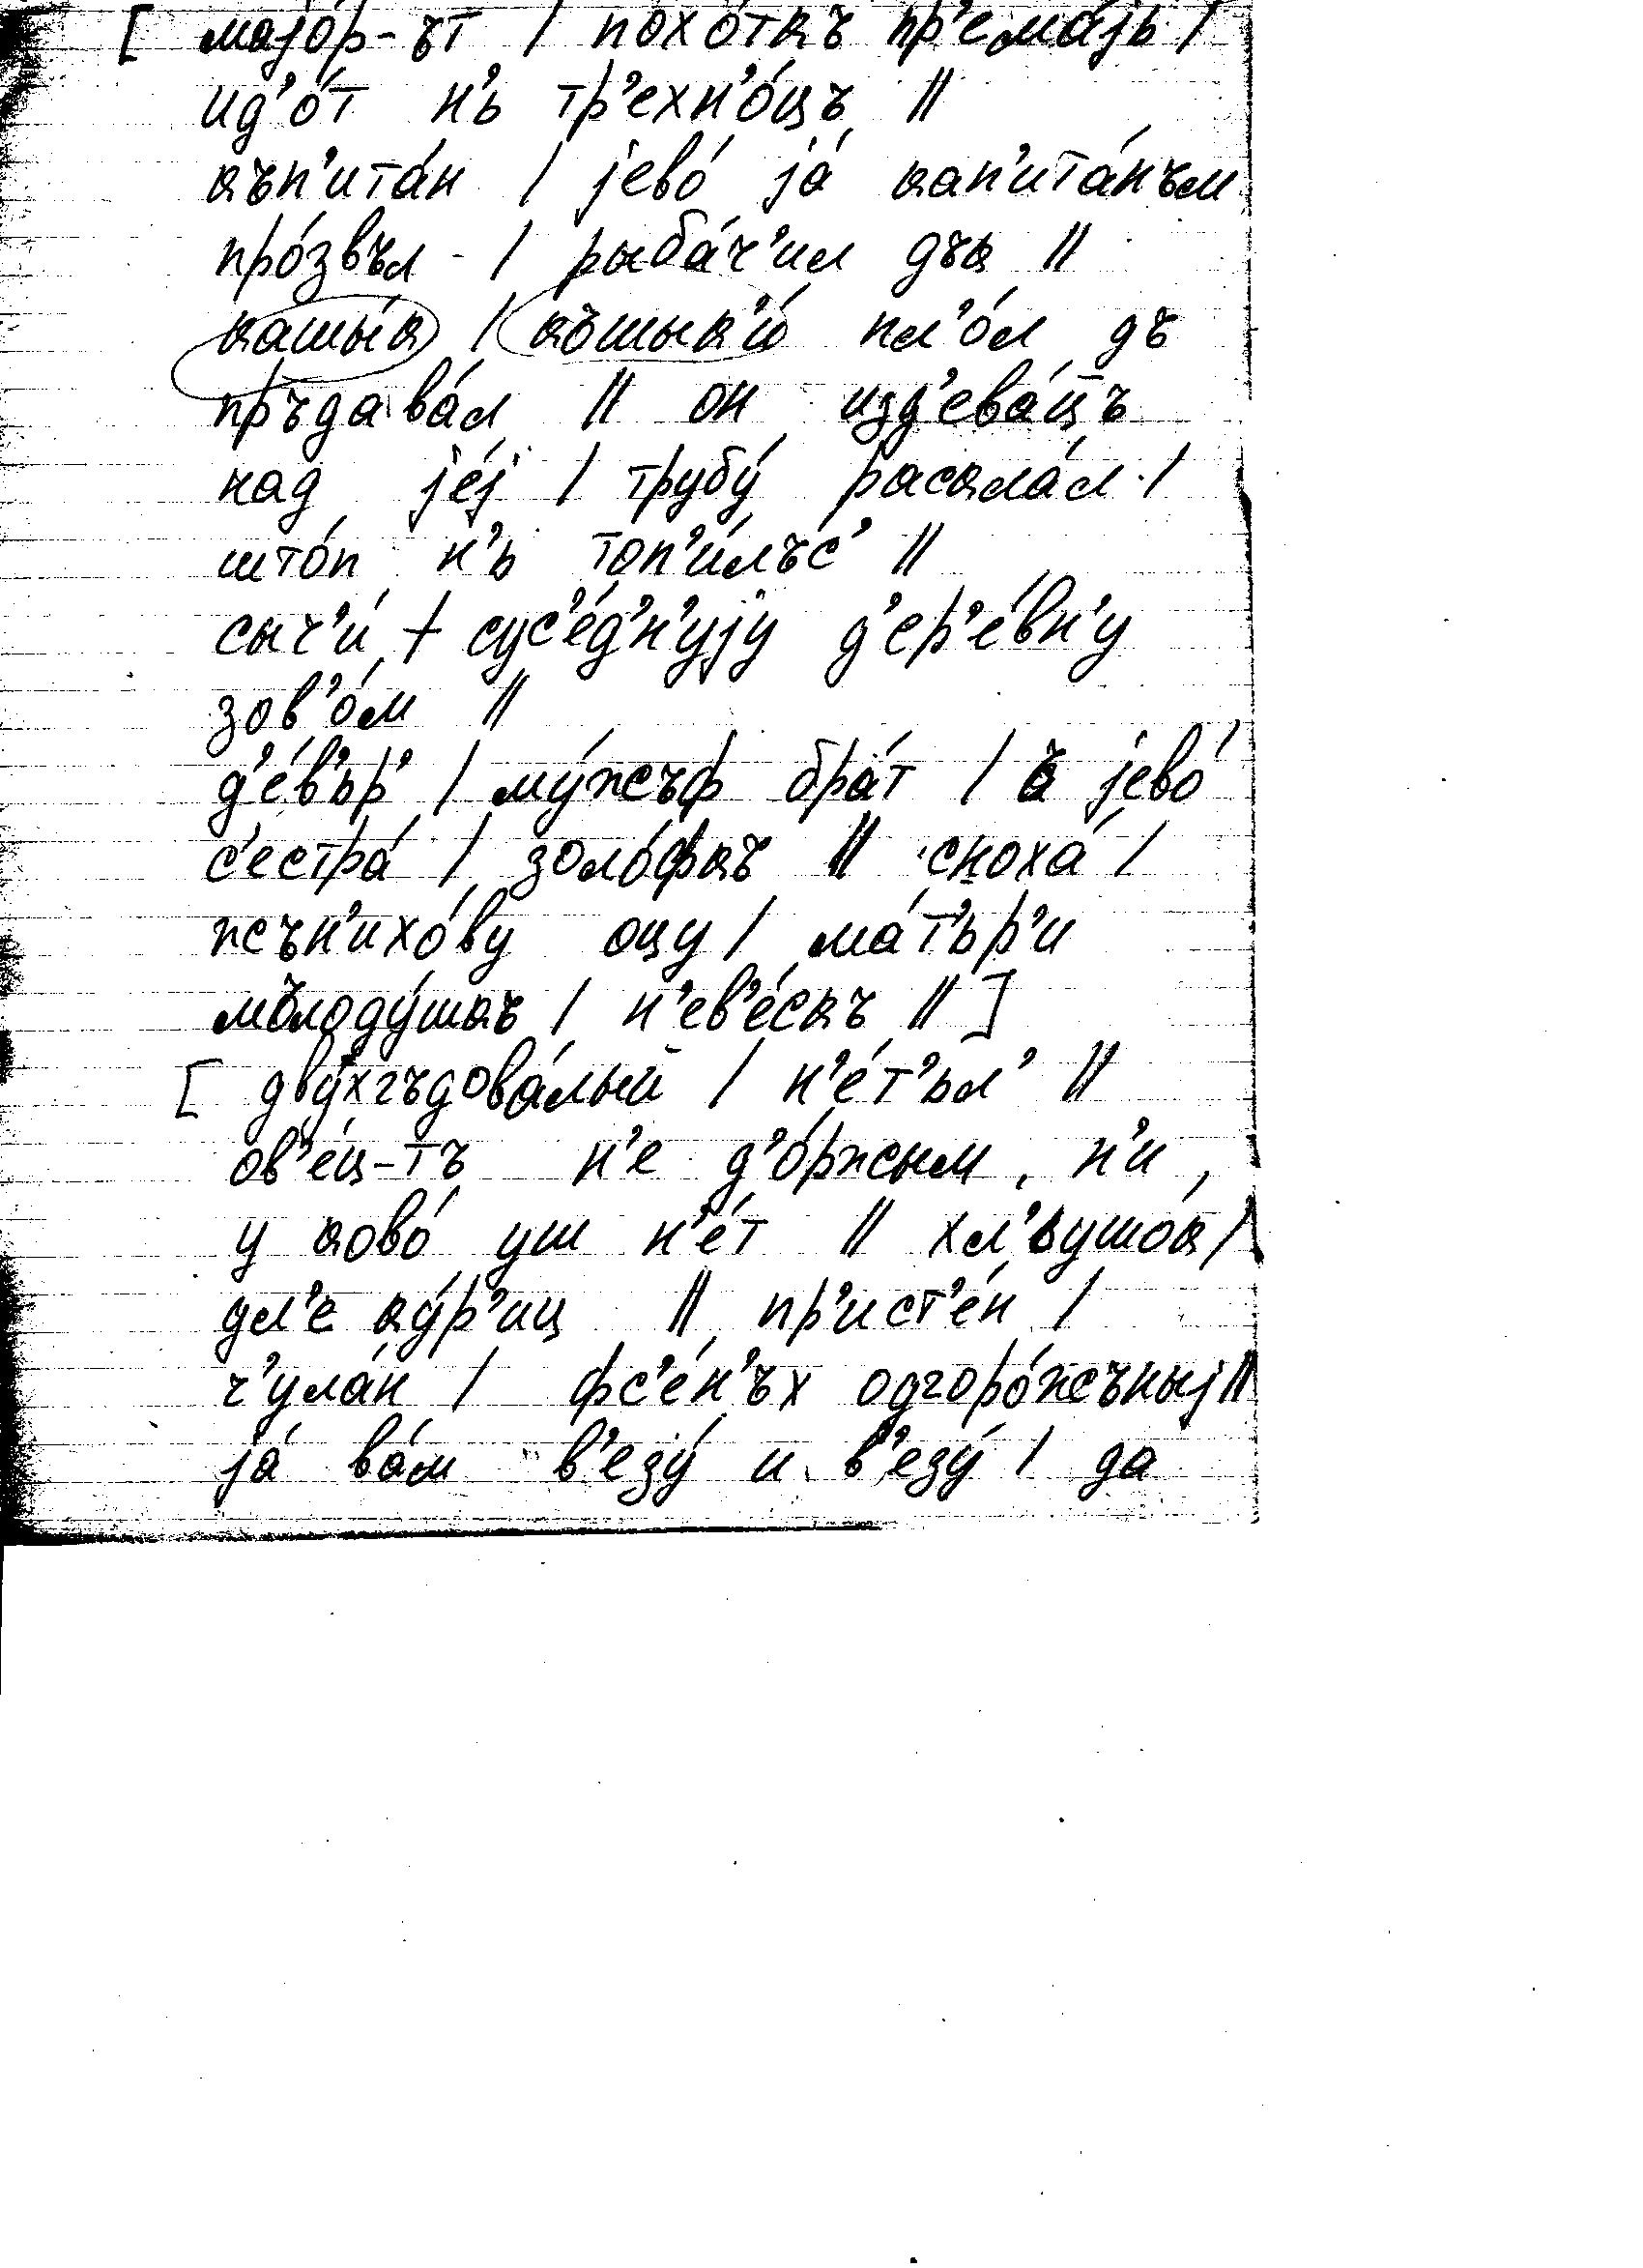 [ мајо́р-ът / похо́ткъ пр'ема́јь /
ид'о́т н'ь тр'ехн'о́цъ //
къп'ита́н / јево́ ја́ кап'ита́нъм
про́звъл - / рыба́ч'ил дък //
кашы́к / къшык'и́ пл'о́л дъ
пръдава́л // он изд'ева́цъ
над је́ј / трубу́ раскла́л /
што́п н'ь топ'и́лъс' //
сыч'и́ + сус'е́д'н'ују д'ер'е́вн'у
зов'о́м //
д'е́в'ър' / му́жъф бра́т / а јево́
с'естра́ / золо́фкъ // сноха́ /
жън'ихо́ву оцу / ма́т'ър'и
мълоду́шкъ / н'ев'е́скъ // ]
[ дву́хгъдова́лый / н'е́т'ьл' //
ов'е́ц-тъ н'е д'о́ржым, н'и,
у ково́ уш н'е́т // хл'ьушо́к /
дл'е ку́р'иц // пр'ист'е́н /
ч'ула́н / фс'е́н'ъх одгоро́жъныј //
ја́ ва́м в'езу́ и в'езу́ / да